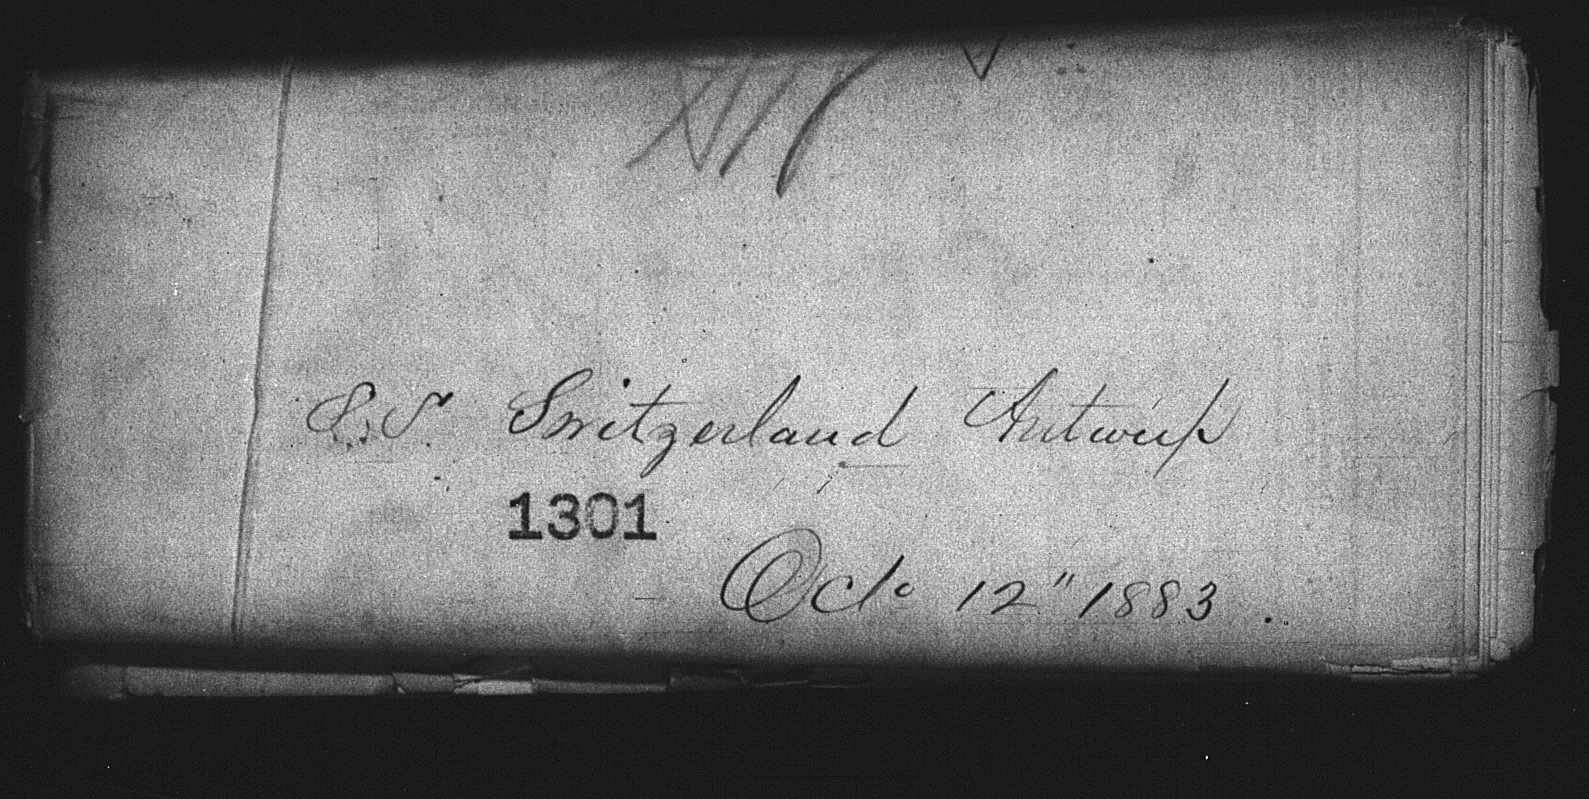 S.S. Switzerland Antwerp
1301
Oct. 12" 1883.